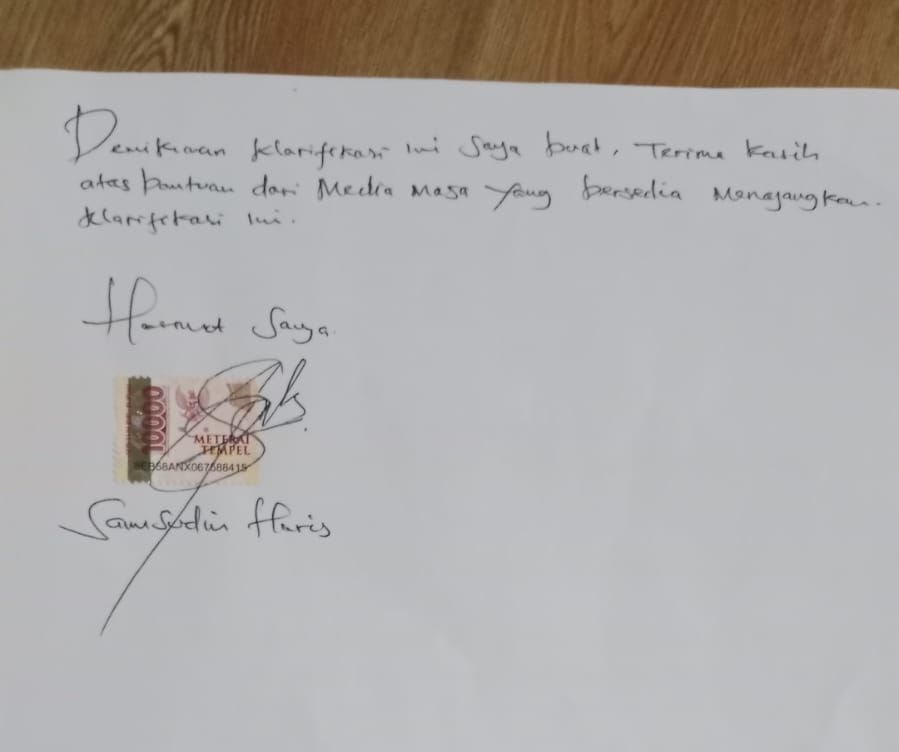 Demikiaan klarifikasi ini saya buat, Terima kasih
atas bantuan dari Media Masa yang bersedia Menayangkan.
klarifikasi ini.
Hormat Saya.
10000
METERAI
TEMPEL
Samsudin Haris